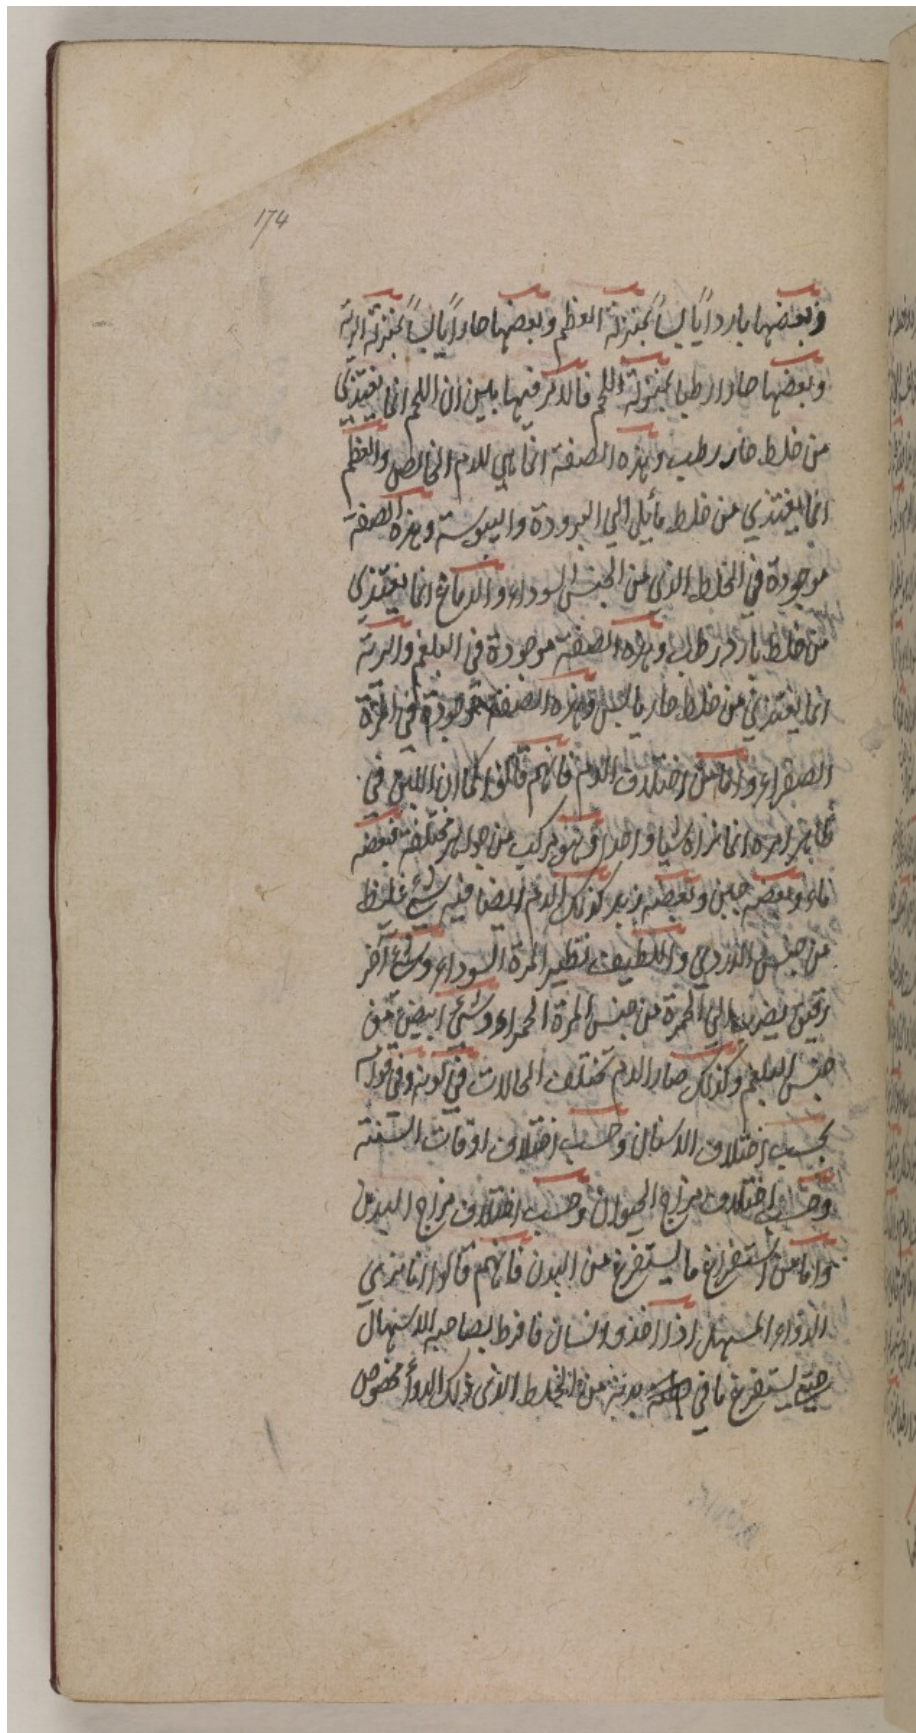 174
وبعضها باردا يابسا بمنزلة العظم وبعضها حارا يابسا بمنزلة الرية
وبعضها حارا رطبا بمنزلة اللحم فالامر فيها بين ان اللحم انما يغتذي
من خلط حار رطب وهذه الصفة انما هي للدم الخالص والعظم
انما يغتذي من خلط مايل الي البرودة واليبوسة وهذه الصفة
موجودة في الخلط الذي من الجنس السوداء والدماغ انما يغتذي
من خلط بارد رطب وهذه الصفة موجودة في البلغم والرية
انما يغتذي من خلط حار يابس وهذه الصفة موجودة في المرة
الصفراء واما من اختلاف الدم فانهم قالوا كما ان اللبن في
ظاهر امره انما نراه شيا واحدا وهو مركب من جواهر مختلفة فبعضه
ماء وبعضه جبن وبعضه زبد كذلك الدم ايضا فيه شئ غليظ
من جنس الدردي واللطيف نظير المرة السوداء وشئ آخر
رقيق يضرب الي الحمرة من جنس المرة الحمراء وشئ ابيض من
جنس البلغم وكذلك صار الدم مختلف الحالات في لونه وفي قوامه
بحسب اختلاف الاسنان وحسب اختلاف اوقات السنة
وحسب اختلاف مزاج الحيوان وحسب اختلاف مزاج البدن
واما من استفراغ ما يستفرغ من البدن فانهم قالوا انا نري
الدواء المسهل اذا اخذه انسان فافرط بصاحبه الاسهال
حتي يستفرغ ما في بدنه من الخلط الذي ذلك الدوأ مخصوص